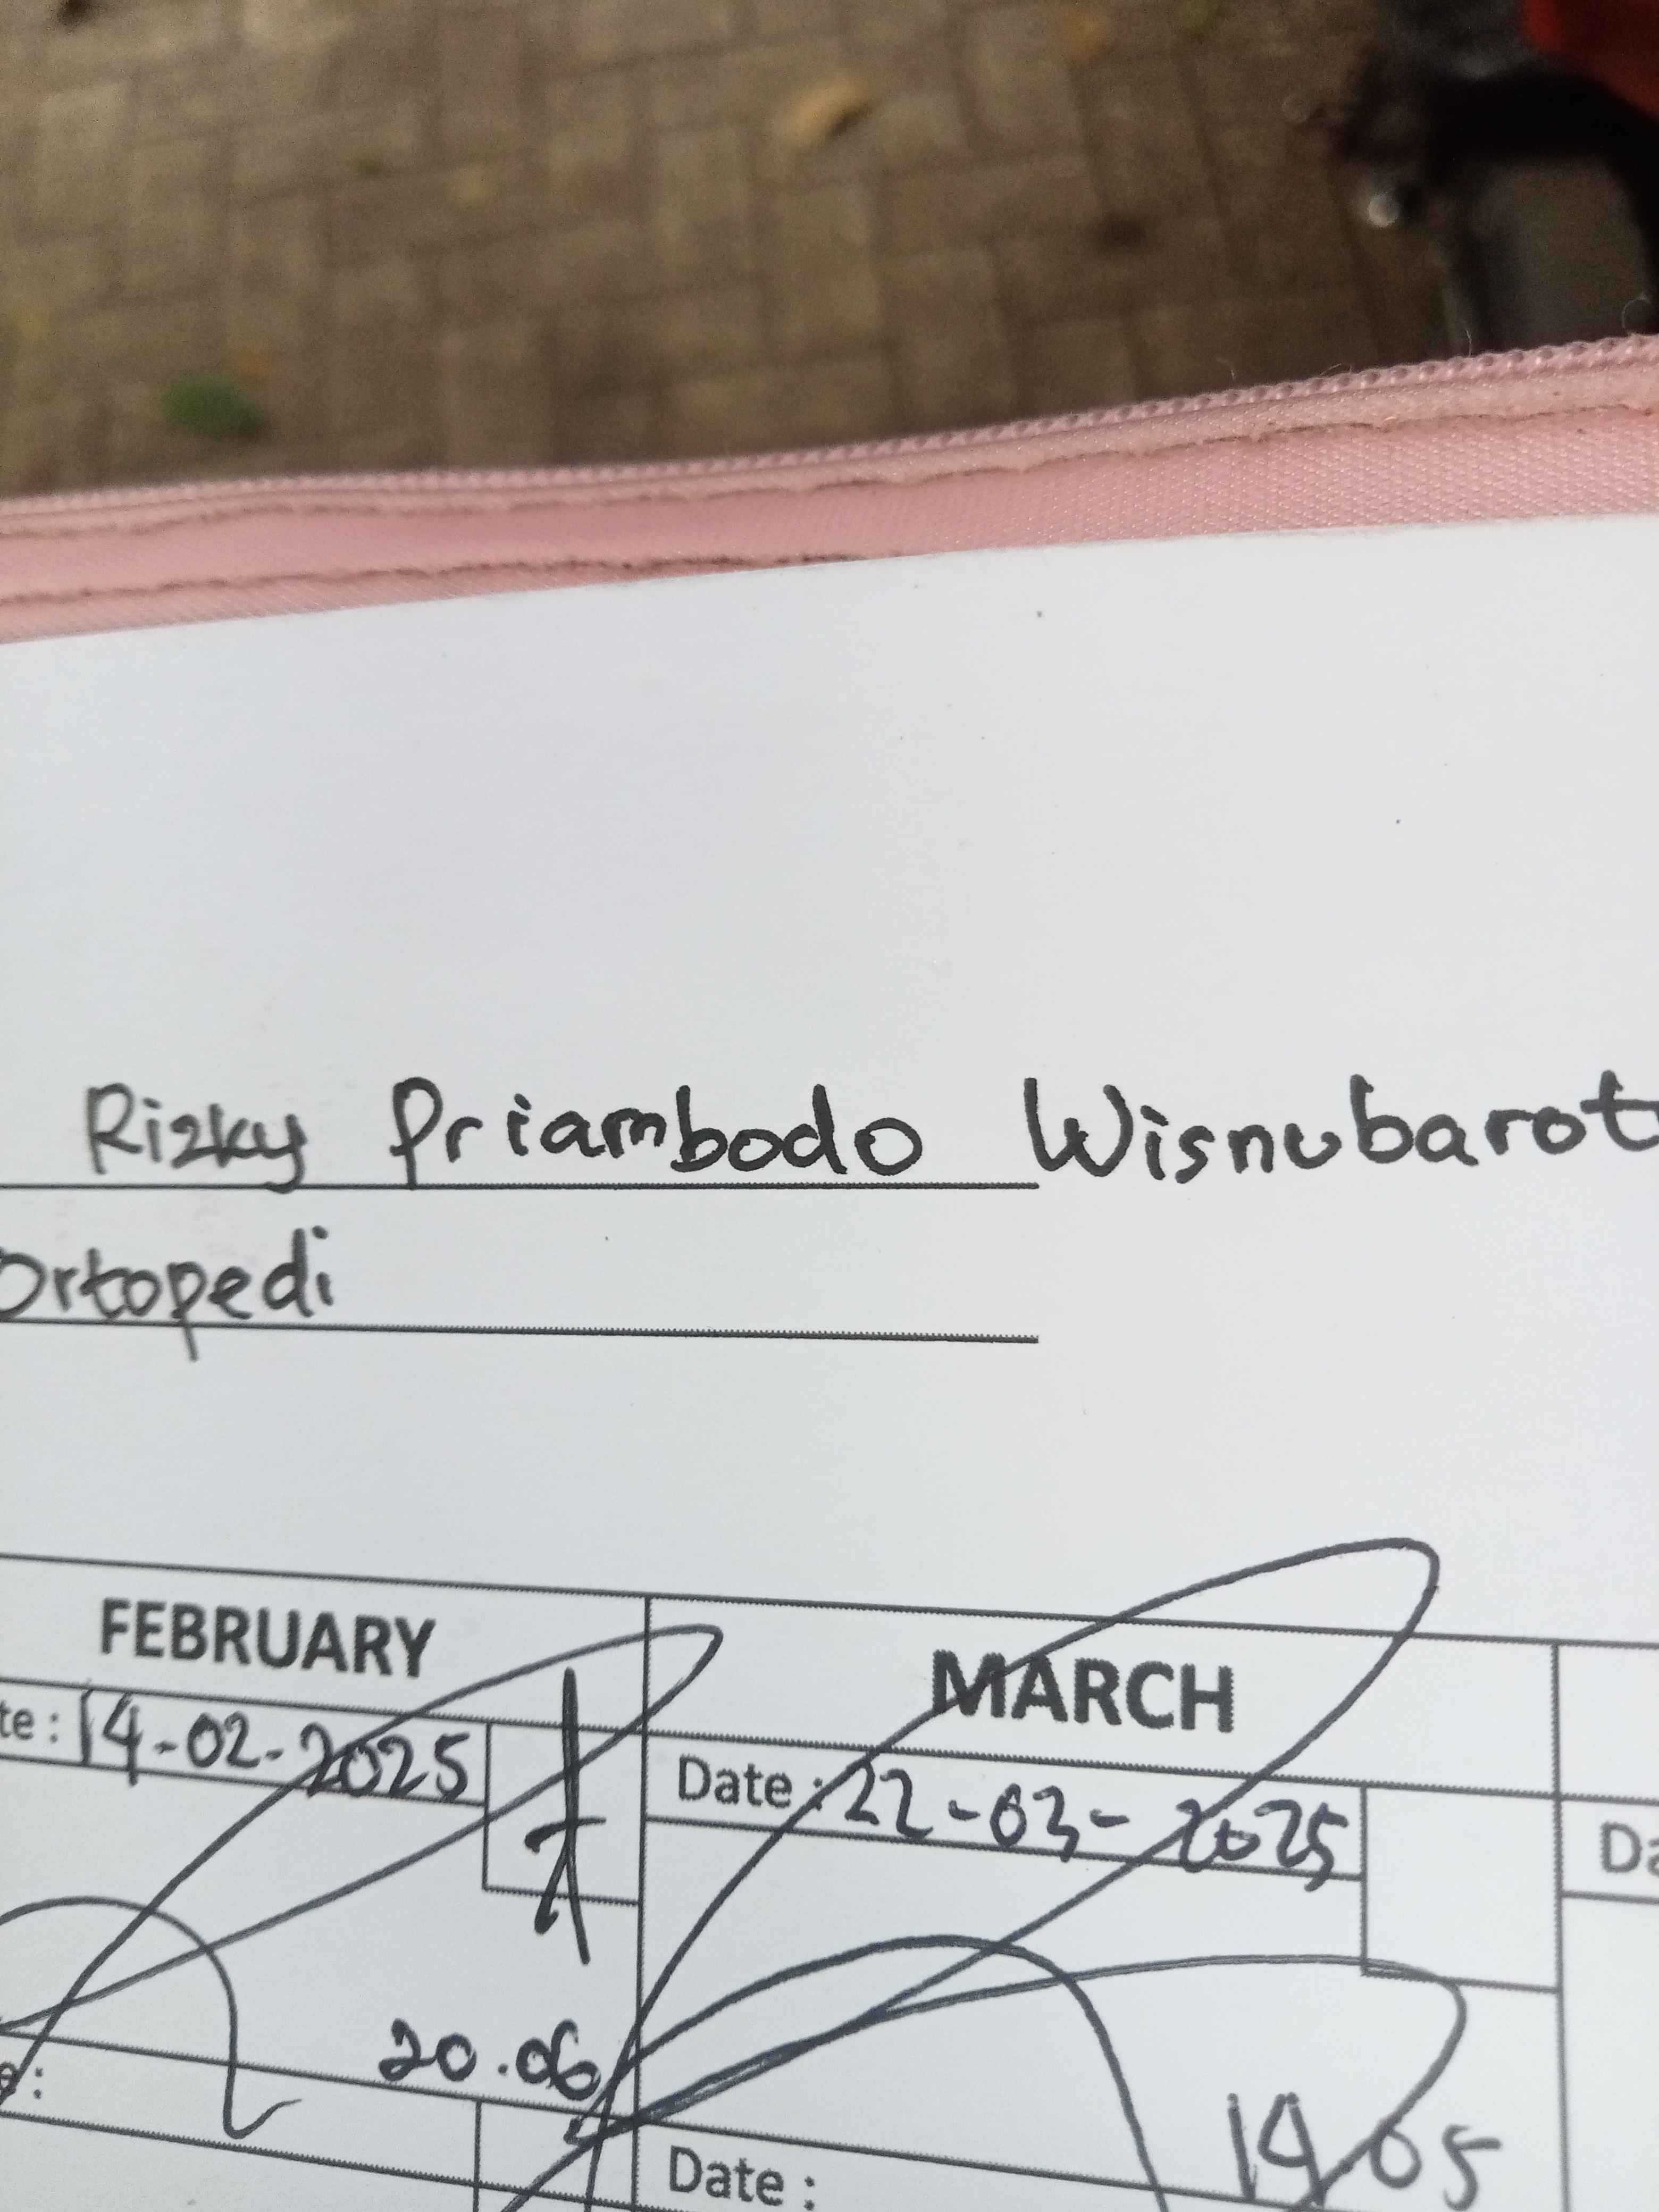 Rizky Priambodo Wisnubarot
Ortopedi
FEBRUARY
MARCH
te : 14-02-2025
Date : 22-03-2025
Da
20.06
19.05
e :
Date :